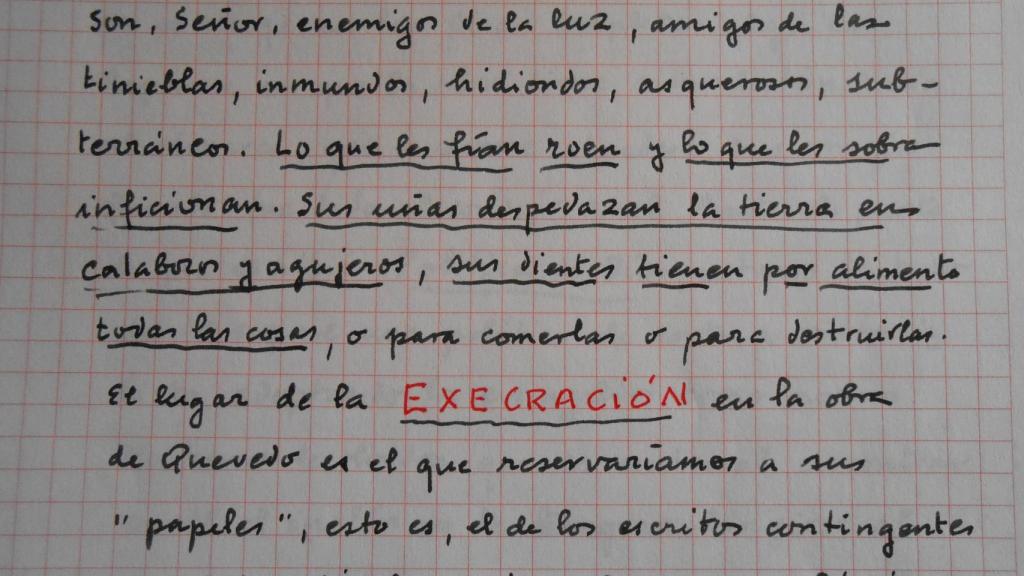 Son, Señor, enemigos de la luz, amigos de las
tinieblas, inmundos, hidiondos, asquerosos, sub-
terráneos. Lo que les fían roen y lo que les sobra
inficionan. Sus uñas despedazan la tierra en
calabozos y agujeros, sus dientes tienen por alimento
todas las cosas, o para comerlas o para destruirlas.
El lugar de la EXECRACIÓN en la obra
de Quevedo es el que reservaríamos a sus
"papeles", esto es, el de los escritos contingentes